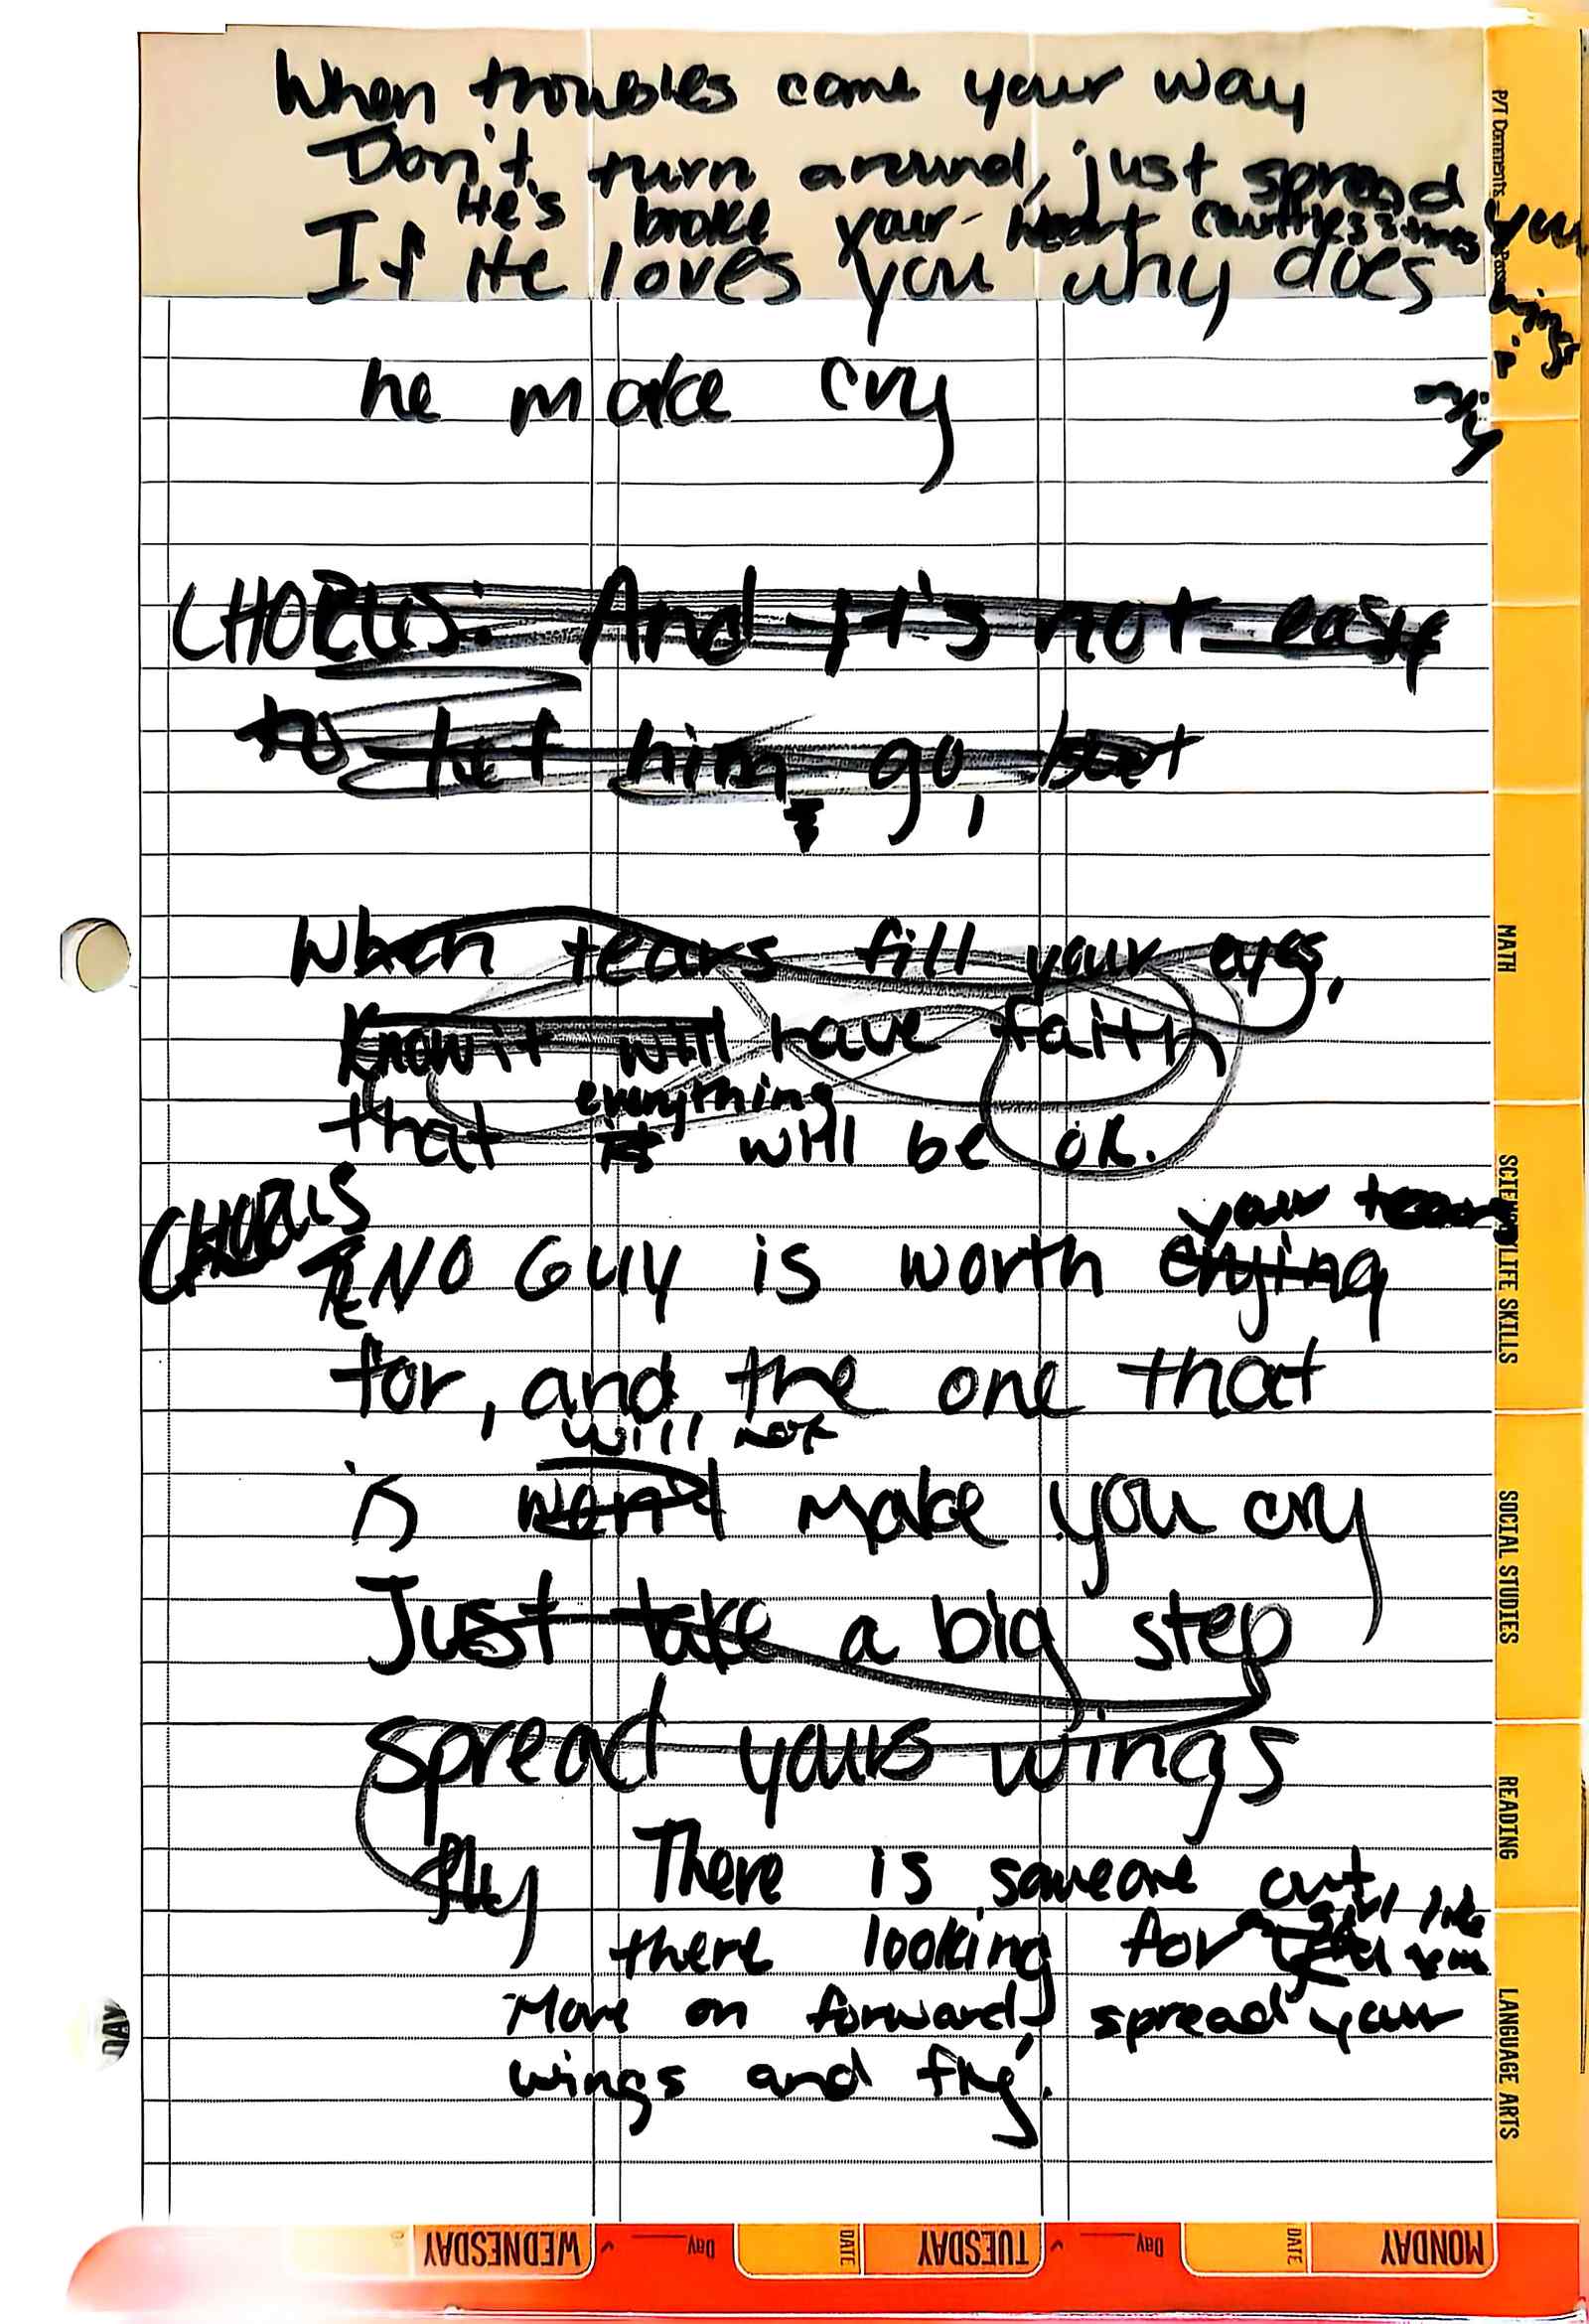 When troubles come your way
Don't turn around, just spread your wings
He's broke your heart countless times
If He loves you why does
he make cry
CHORUS: And it's not easy
to let him go, but
When tears fill your eyes,
Know it will have faith
everything
that it will be ok.
CHORUS
your tears
NO GUY is worth crying
for, and the one that
will not
is won't make you cry
Just take a big step
spread yours wings
fly There is someone out
a girl like
there looking for you
Move on forward, spread your
wings and fly.
P/T Comments
MATH
SCIENCE/LIFE SKILLS
SOCIAL STUDIES
READING
LANGUAGE ARTS
MONDAY
DATE
Day
TUESDAY
DATE
Day
WEDNESDAY